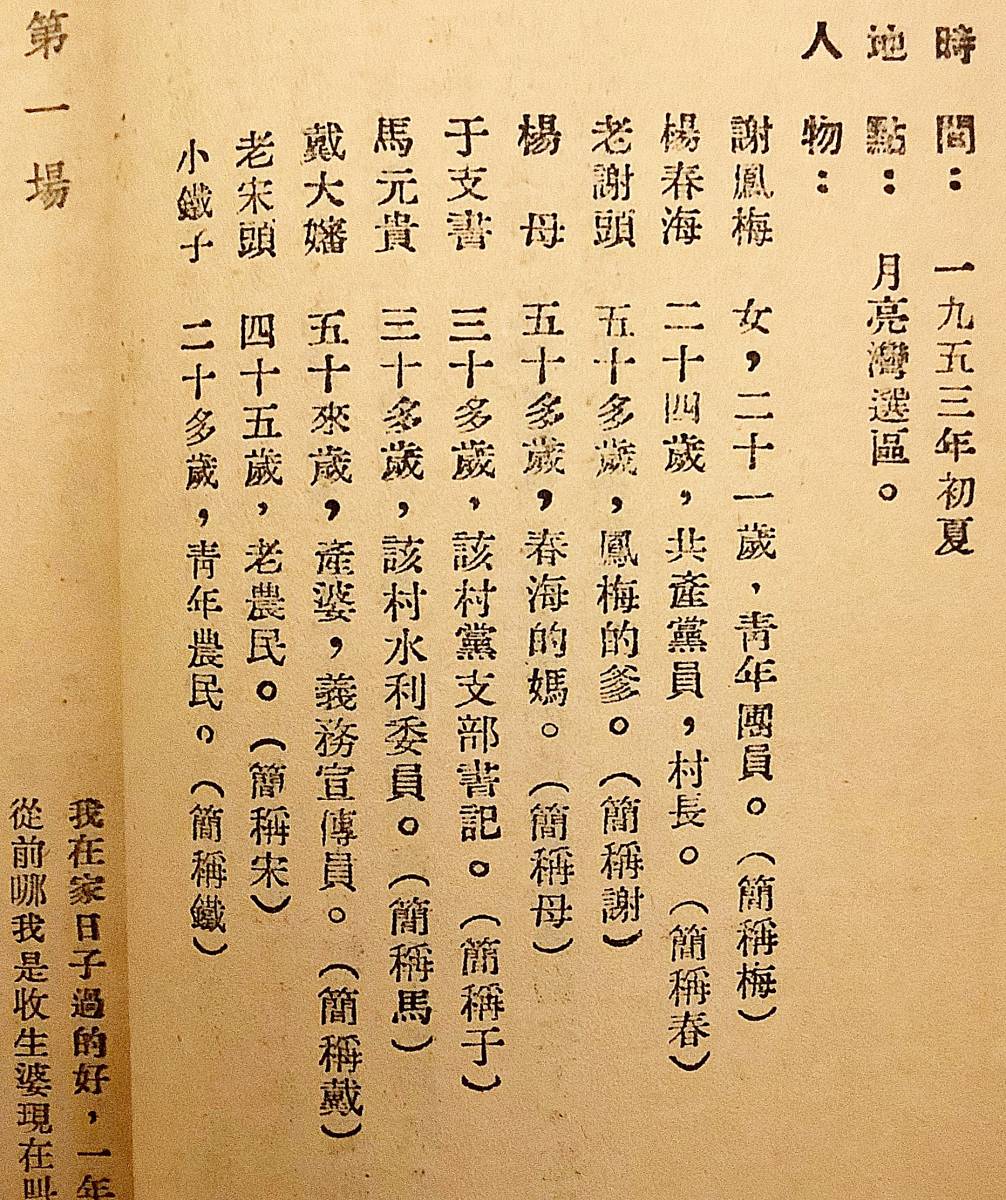 時間：一九五三年初夏
地點：月亮灣選區。
人物：
謝鳳梅　女，二十一歲，青年團員。（簡稱梅）
楊春海　二十四歲，共產黨員，村長。（簡稱春）
老謝頭　五十多歲，鳳梅的爹。（簡稱謝）
楊　母　五十多歲，春海的媽。（簡稱母）
于支書　三十多歲，該村黨支部書記。（簡稱于）
馬元貴　三十多歲，該村水利委員。（簡稱馬）
戴大嬸　五十來歲，產婆，義務宣傳員。（簡稱戴）
老宋頭　四十五歲，老農民。（簡稱宋）
小鐵子　二十多歲，青年農民。（簡稱鐵）
第一場
我在家日子過的好，一年
從前哪我是收生婆現在叫